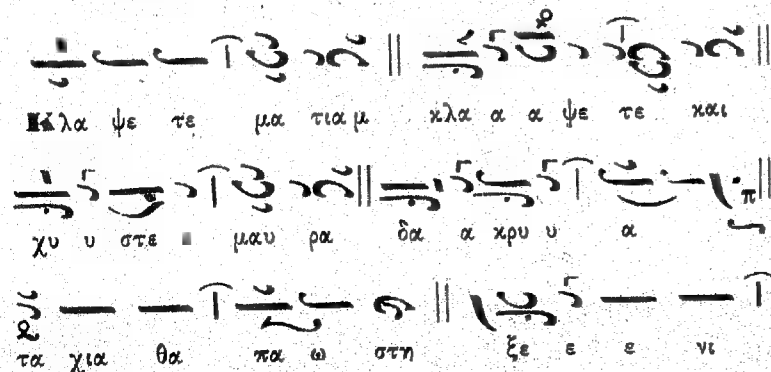 Κλα ψε τε μα τια μ κλα α α ψε τε και
χυ υ στε μαυ ρα δα α κρυ υ α π
τα χια θα πα ω στη ξε ε ε νι